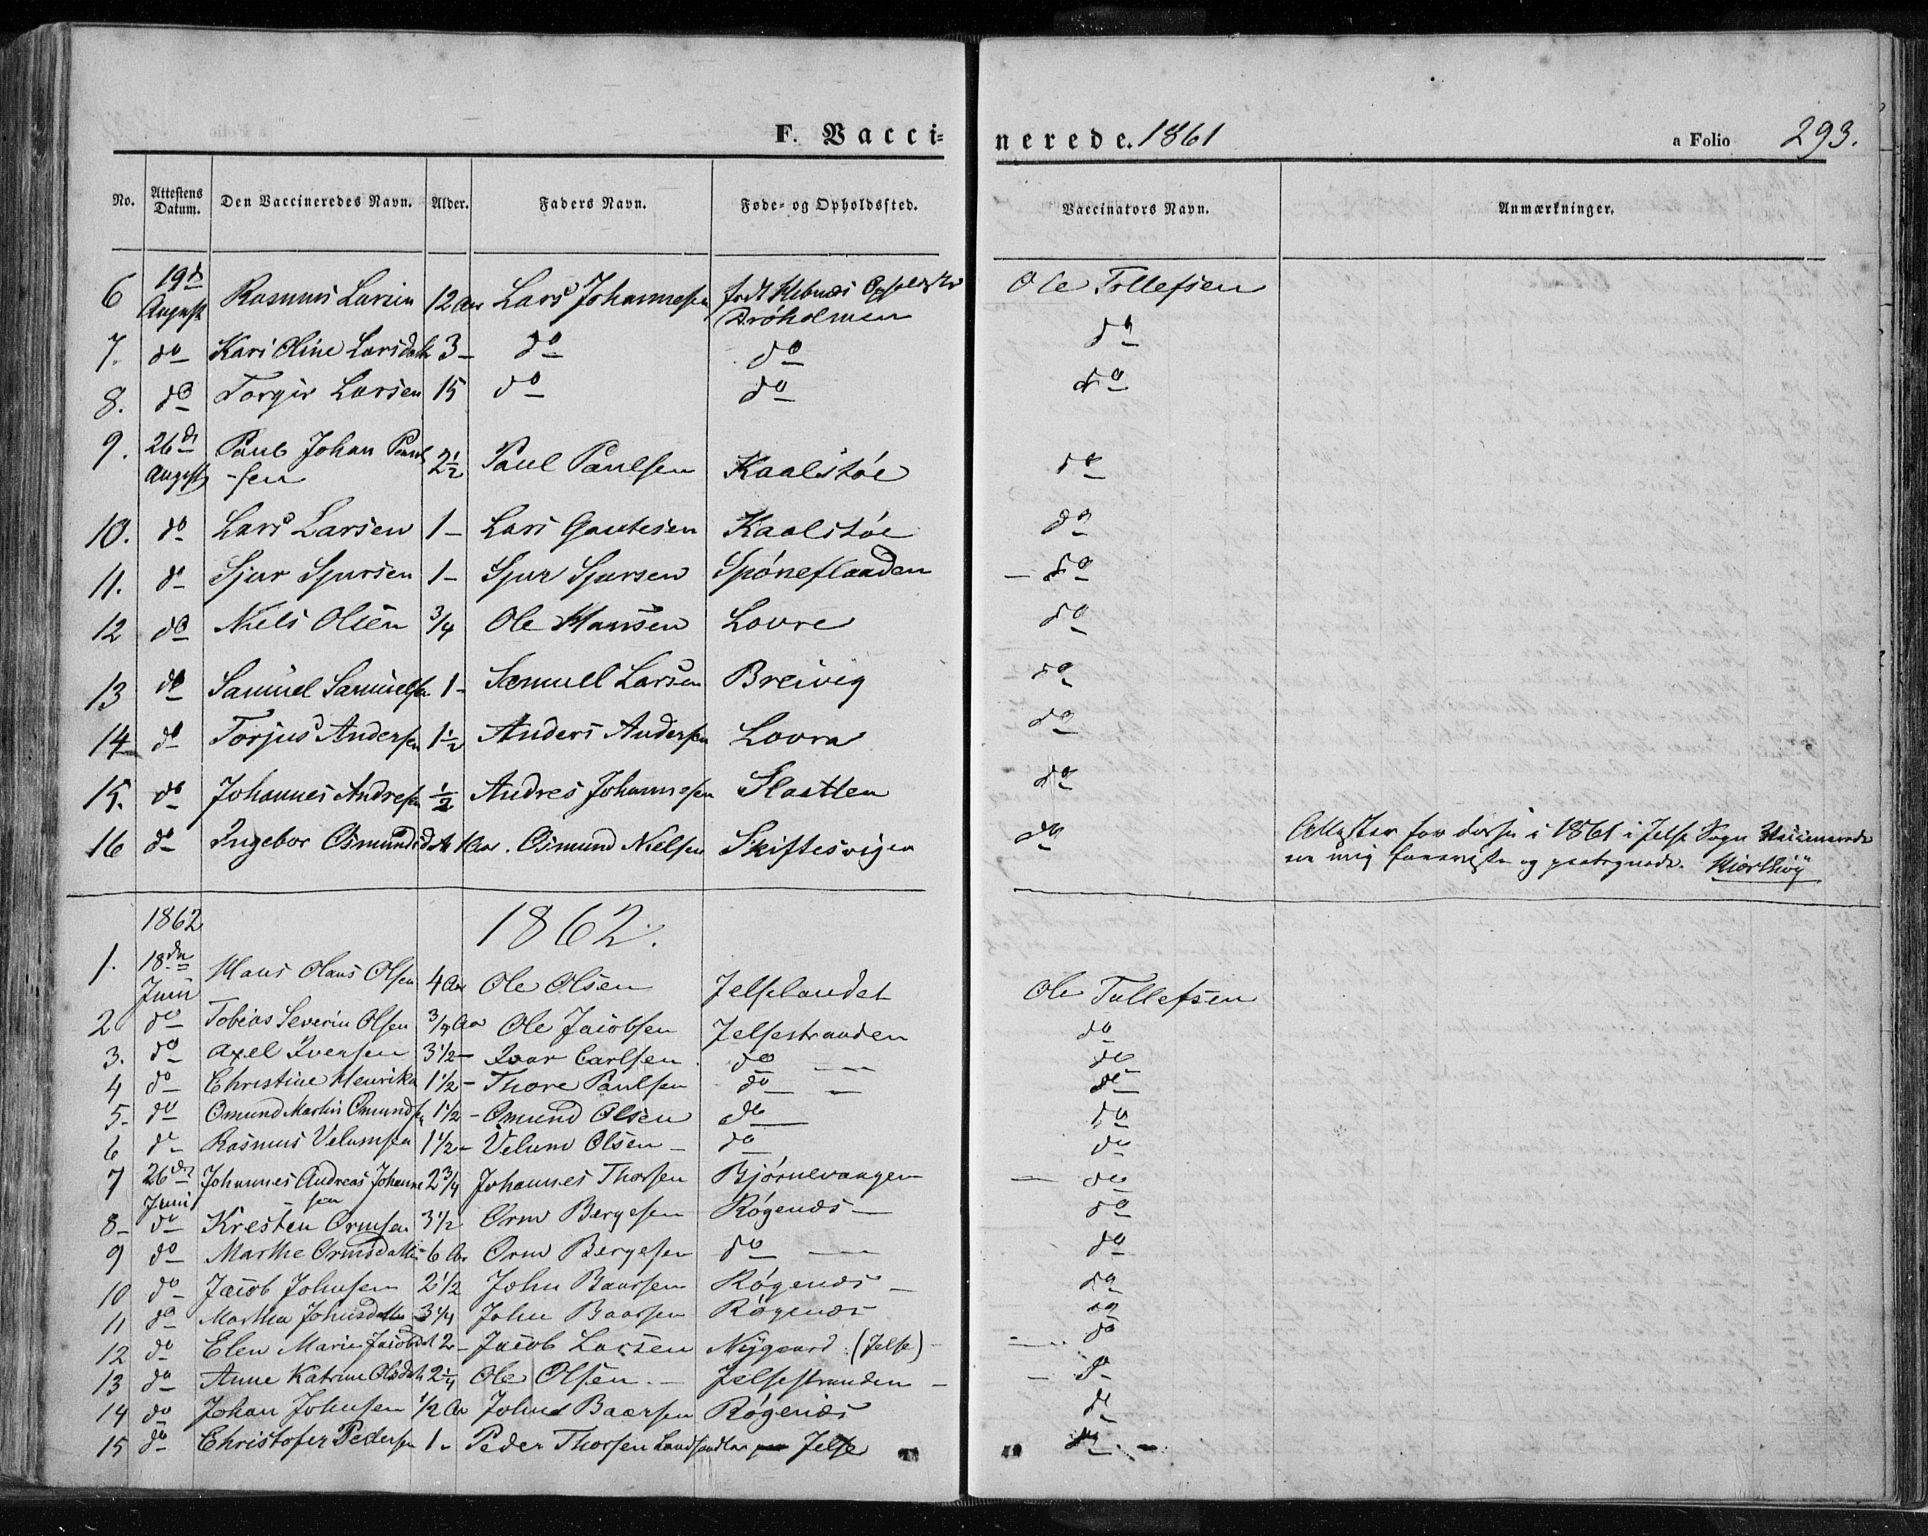 F. Vacci=
nerede. 1861
a Folio 293.
No. Attestens Datum. Den Vaccineredes Navn. Alder. Faders Navn. Føde- og Opholdssted. Vaccinators Navn. Anmærkninger.
6 19d August Rasmus Larsen 12 Aar Lars Johannesen født Ole Tollefsen
7. do Kari Oline Larsdatr 3 - do do do
8. do Torgir Larsen 15 do do do
9. 26d August Paul Johan Paul 2½ Paul Paulsen Kaalstøe do
-sen
10. do Lars Larsen 1 - Lars Gautesen Kaalstøe do
11. do Sjur Sjursen 1 - Sjur Sjursen Spóneflaaden - do
12 do Niels Olsen ¾ Ole Hansen Lovre do
13 do Samuel Samuelsen 1 - Samuell Larsen Breivig do
14 do Torjus Andersen 1½ Anders Andersen Lovra do
15. do Johannes Andresen ½ Andres Johannesen Slaatten do
16 do Ingebor Osmundsdatr 1 Aar. Osmund Nielsen Skiftesvigen do
i 1861 i Jelse Sogn
mig og
1862 1862.
1. 18de Juni Hans Olaus Olsen 4 Aar Ole Olsen Jelselandet Ole Tollefsen
2 do Tobias Severin Olsen ¾ Aar Ole Jacobsen Jelsestranden do
3. do Axel Iversen 3½ - Ivar Carlsen do - do
4 do Christine Henrikke 1½ - Thore Paulsen do - do
5. do Omund Martin Omundsen 1½ - Omund Olsen do do
6 do Rasmus Velumsen 1½ - Velum Olsen - do do
7 26de Juni Johannes Andreas Johanne 2¾ Johannes Thorsen Bjørnevangen - do
sen
8 - do Kresten Ormsen 3½ Orm Bergesen Røgenæs - do
9 do Marthe Ormsdatter 6 Aar Orm Bergesen do - do
10 do Jacob Johnsen 2½ John Baarsen Røgenæs - do
11 do Martha Johnsdatter 3¼ John Baarsen Røgenæs do
12 do Elen Marie Jacobsdt 2 - Jacob Larsen Nygaard (Jelse) - do
13 do Anne Katrine Olsdatr 2¼ Ole Olsen - Jelsestranden - - do
14 do Johan Johnsen ½ Aar John Baarsen Røgenæs do
15 do Christofer Pedersen 1 - Peder Thorsen Landhandler Jelse do